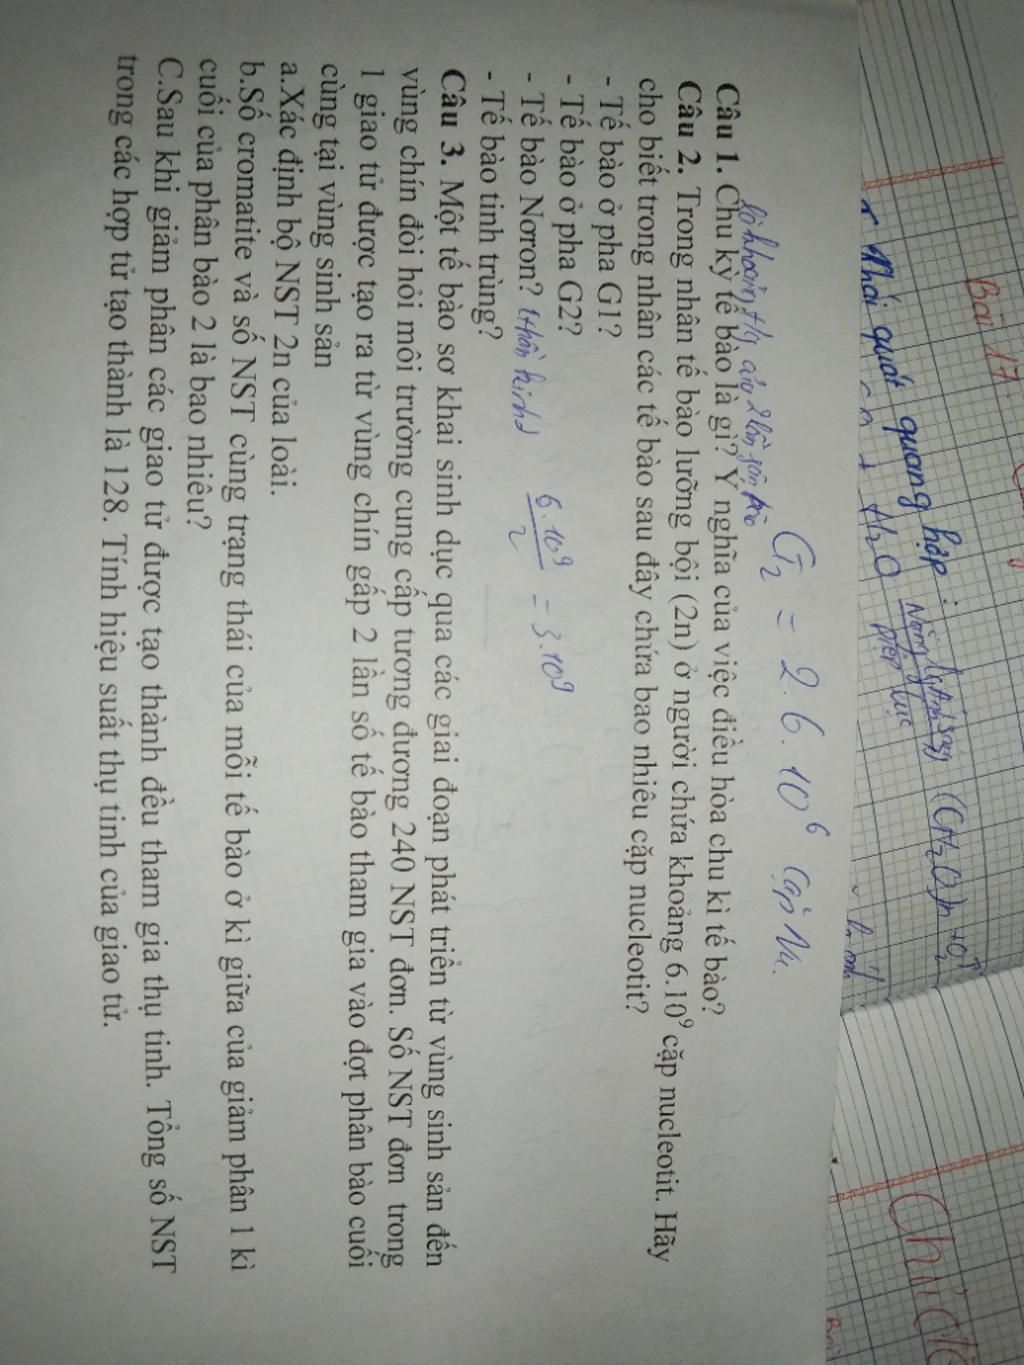 Bài 17
Khái quát quang hợp :
H₂O Năng lg Ánh sáng (CH₂O)n + O₂
diệp lục
Chu
G₂ = 2.6.10⁶ cặp Nu.
là khoảng t/g của 2 lần
Câu 1. Chu kỳ tế bào là gì? Ý nghĩa của việc điều hòa chu kì tế bào?
Câu 2. Trong nhân tế bào lưỡng bội (2n) ở người chứa khoảng 6.10⁹ cặp nucleotit. Hãy
cho biết trong nhân các tế bào sau đây chứa bao nhiêu cặp nucleotit?
- Tế bào ở pha G1?
- Tế bào ở pha G2?
- Tế bào Noron? thần kinh
6.10⁹/2 = 3.10⁹
- Tế bào tinh trùng?
Câu 3. Một tế bào sơ khai sinh dục qua các giai đoạn phát triển từ vùng sinh sản đến
vùng chín đòi hỏi môi trường cung cấp tương đương 240 NST đơn. Số NST đơn trong
1 giao tử được tạo ra từ vùng chín gấp 2 lần số tế bào tham gia vào đợt phân bào cuối
cùng tại vùng sinh sản
a.Xác định bộ NST 2n của loài.
b.Số cromatite và số NST cùng trạng thái của mỗi tế bào ở kì giữa của giảm phân 1 kì
cuối của phân bào 2 là bao nhiêu?
C.Sau khi giảm phân các giao tử được tạo thành đều tham gia thụ tinh. Tổng số NST
trong các hợp tử tạo thành là 128. Tính hiệu suất thụ tinh của giao tử.